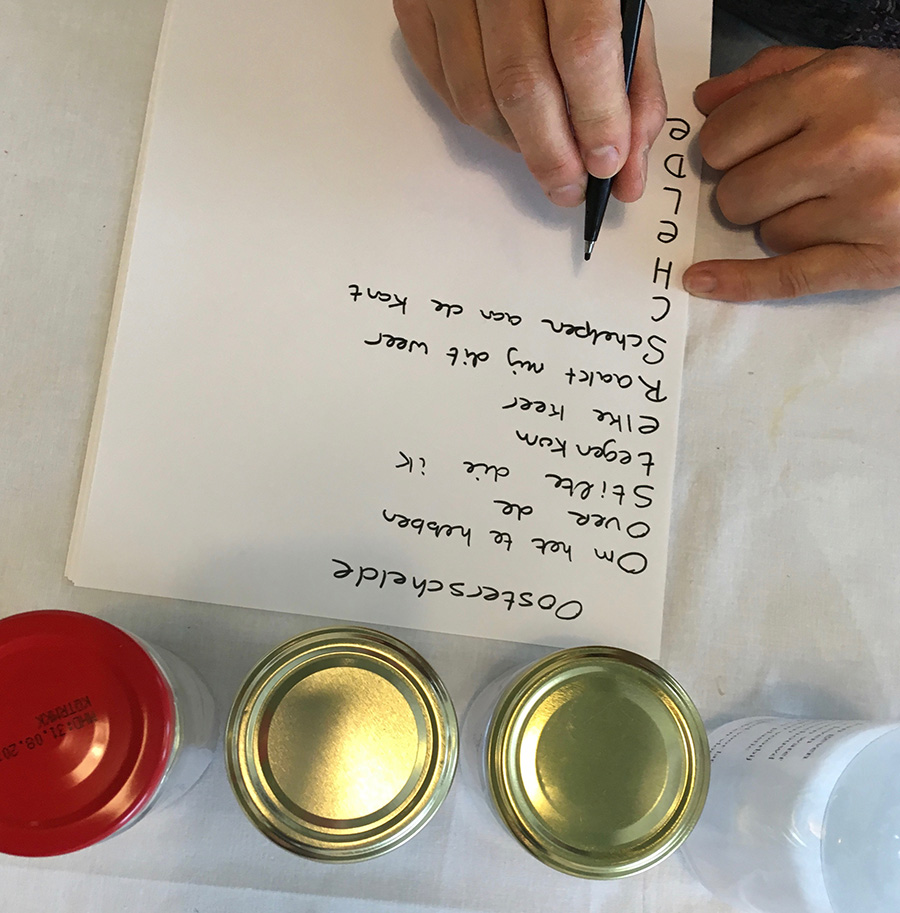 Oosterschelde
Om het te hebben
Over de
Stilte die ik
tegenkom
elke keer
Raakt mij dit weer
Schelpen aan de kant
C
H
e
L
D
e
MHD: 31.08.20